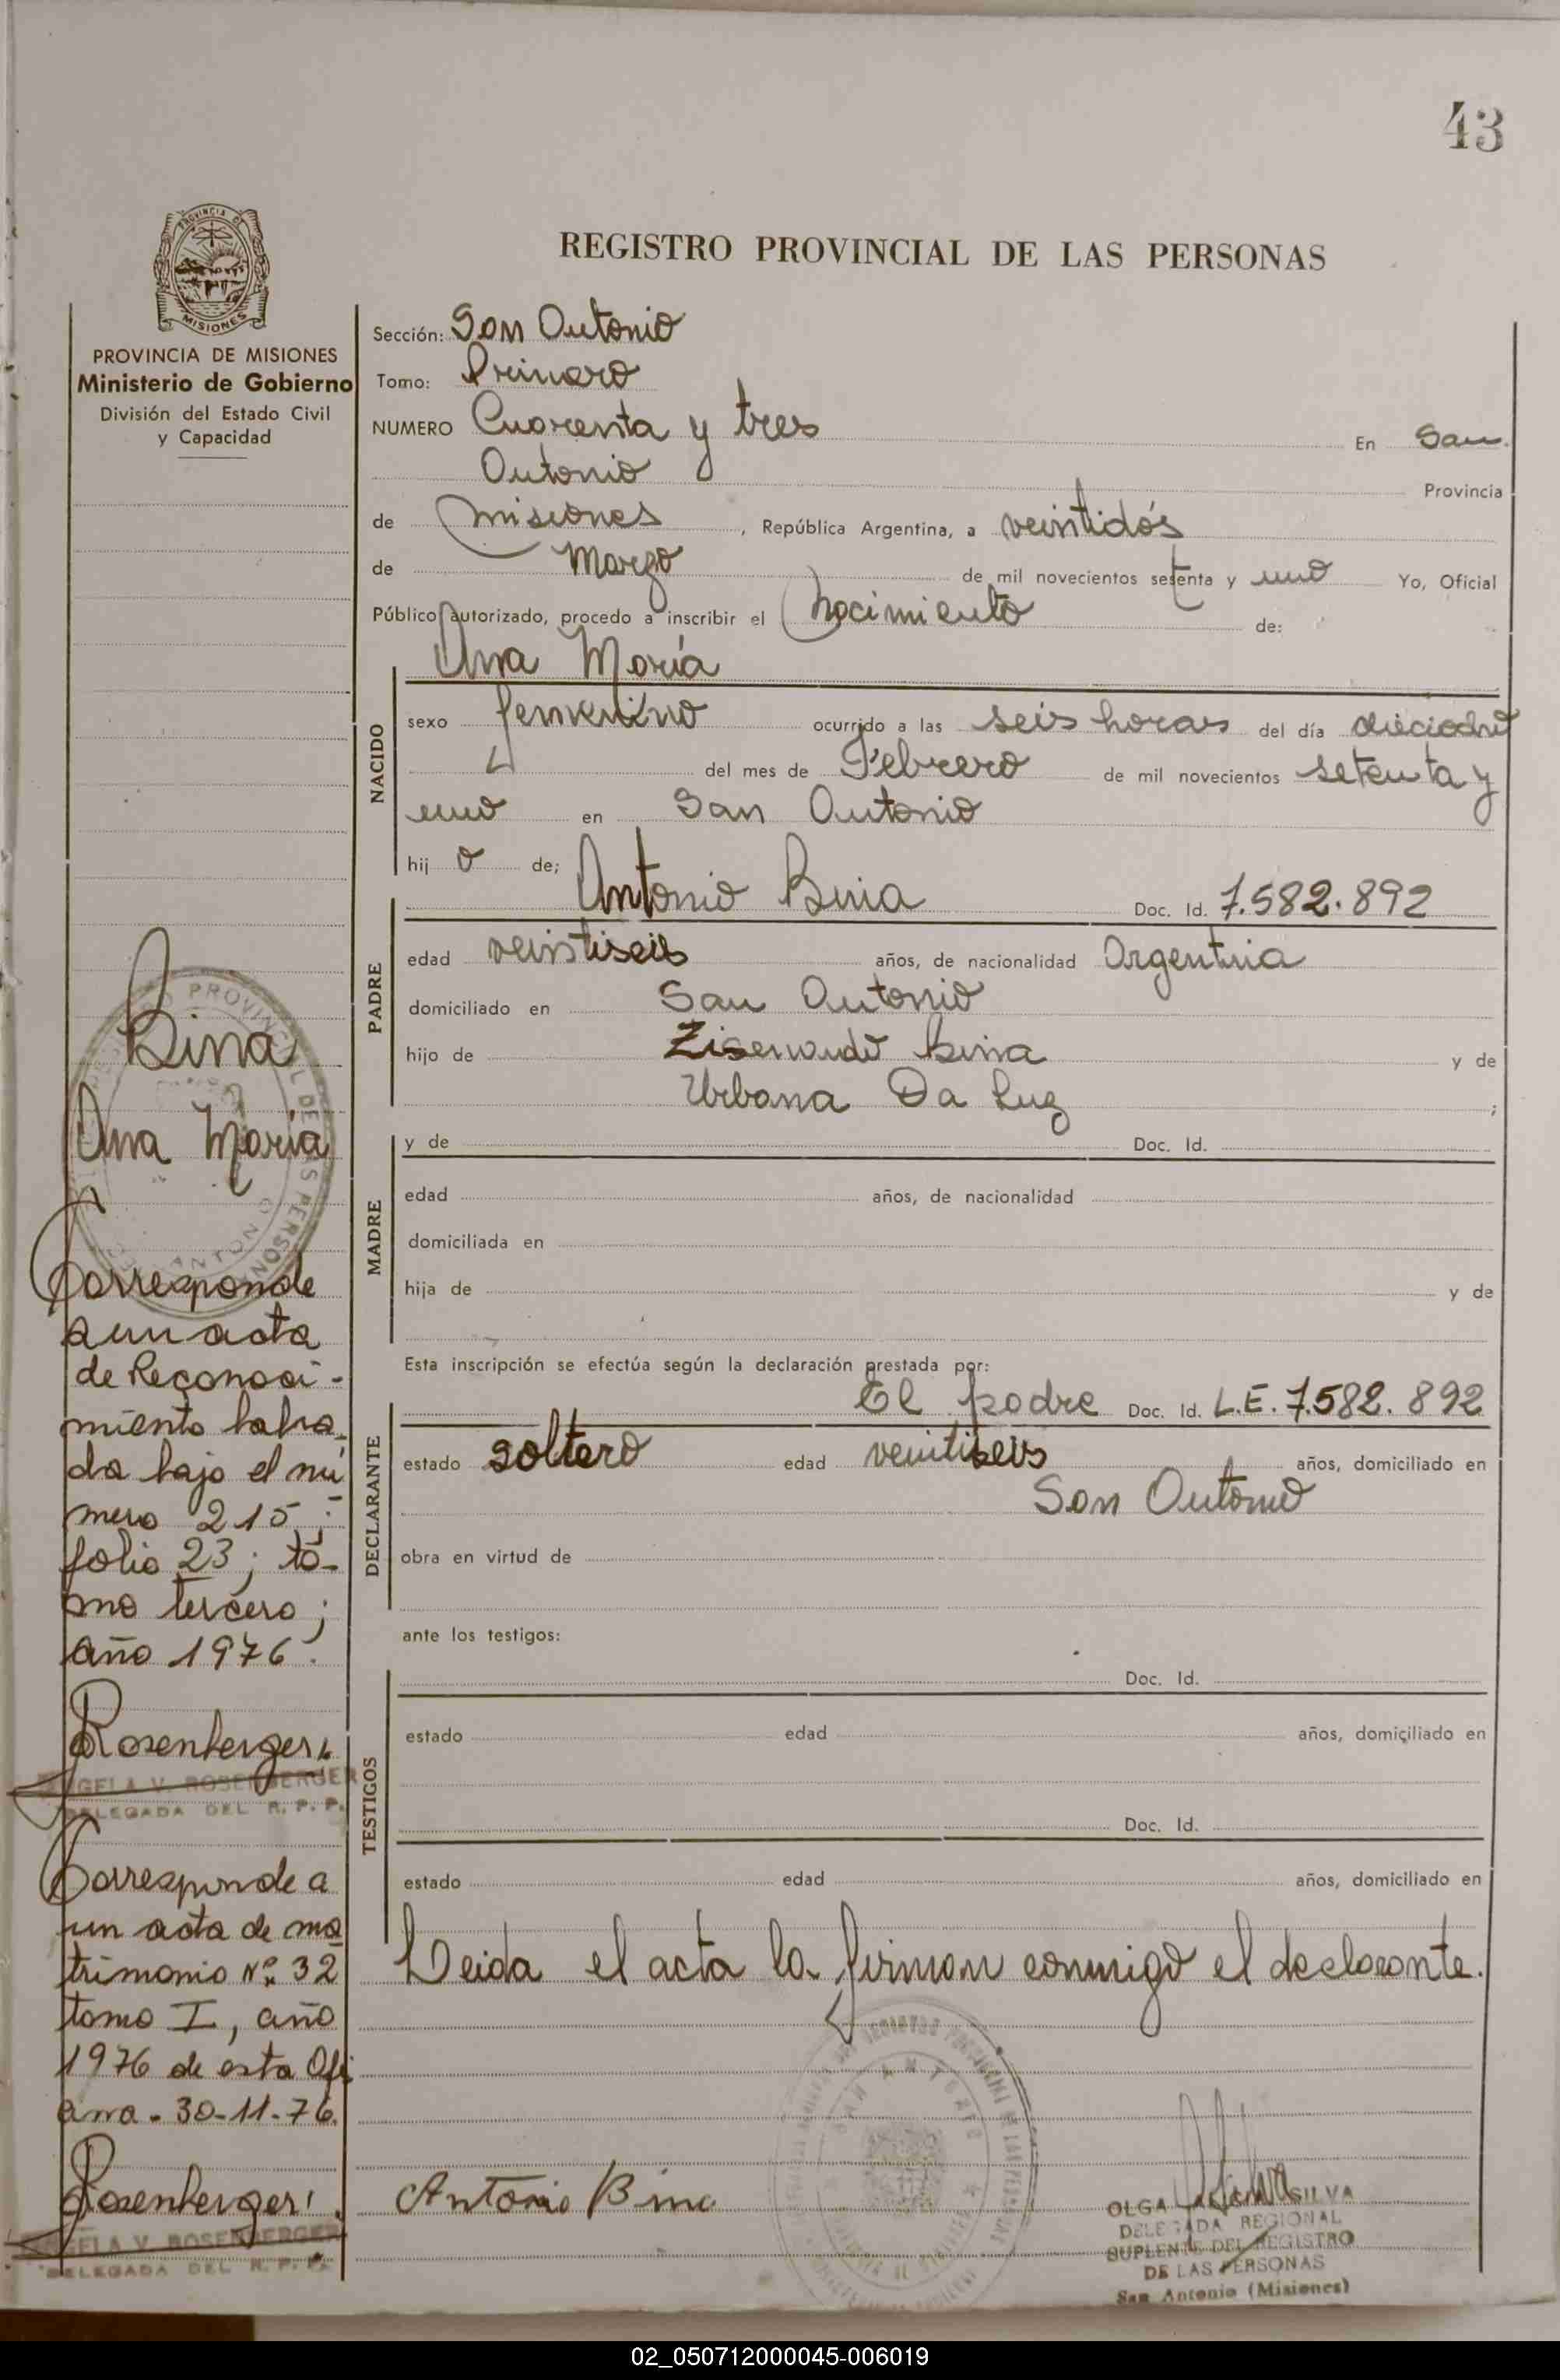 43
PROVINCIA DE
MISIONES
PROVINCIA DE MISIONES
Ministerio de Gobierno
División del Estado Civil
y Capacidad
REGISTRO PROVINCIAL DE LAS PERSONAS
Sección: San Antonio
Tomo: Primero
NUMERO Cuarenta y tres En San
Antonio Provincia
de Misiones, República Argentina, a veintidós
de Marzo de mil novecientos setenta y uno Yo, Oficial
Público autorizado, procedo a inscribir el Nacimiento de:
Ana María
NACIDO
sexo femenino ocurrido a las seis horas del día dieciocho
del mes de Febrero de mil novecientos setenta y
uno en San Antonio
hij a de;
PADRE
Antonio Bina Doc. Id. 7.582.892
edad veintiseis años, de nacionalidad Argentina
domiciliado en San Antonio
hijo de Zisenando Bina y de
Urbana Da Luz ;
MADRE
y de Doc. Id.
edad años, de nacionalidad
domiciliada en
hija de y de
Esta inscripción se efectúa según la declaración prestada por:
DECLARANTE
El padre Doc. Id. L.E. 7.582.892
estado soltero edad veintiseis años, domiciliado en
San Antonio
obra en virtud de
ante los testigos:
TESTIGOS
Doc. Id.
estado edad años, domiciliado en
Doc. Id.
estado edad años, domiciliado en
Leida el acta la firman conmigo el declarante.
Antonio Bina
OLGA SILVA
DELEGADA REGIONAL
SUPLENTE DEL REGISTRO
DE LAS PERSONAS
San Antonio (Misiones)
Bina
Ana María
Corresponde
a un acta
de Reconoci-
miento labra
da bajo el nú
mero 215;
folio 23; to-
mo tercero;
año 1976.
Rosenberger
ANGELA V. ROSENBERGER
DELEGADA DEL R. P. P.
Corresponde a
un acta de ma
trimonio Nº 32
tomo I, año
1976 de esta Ofi
cina - 30-11-76.
Rosenberger
ANGELA V. ROSENBERGER
DELEGADA DEL R. P. P.
02_050712000045-006019